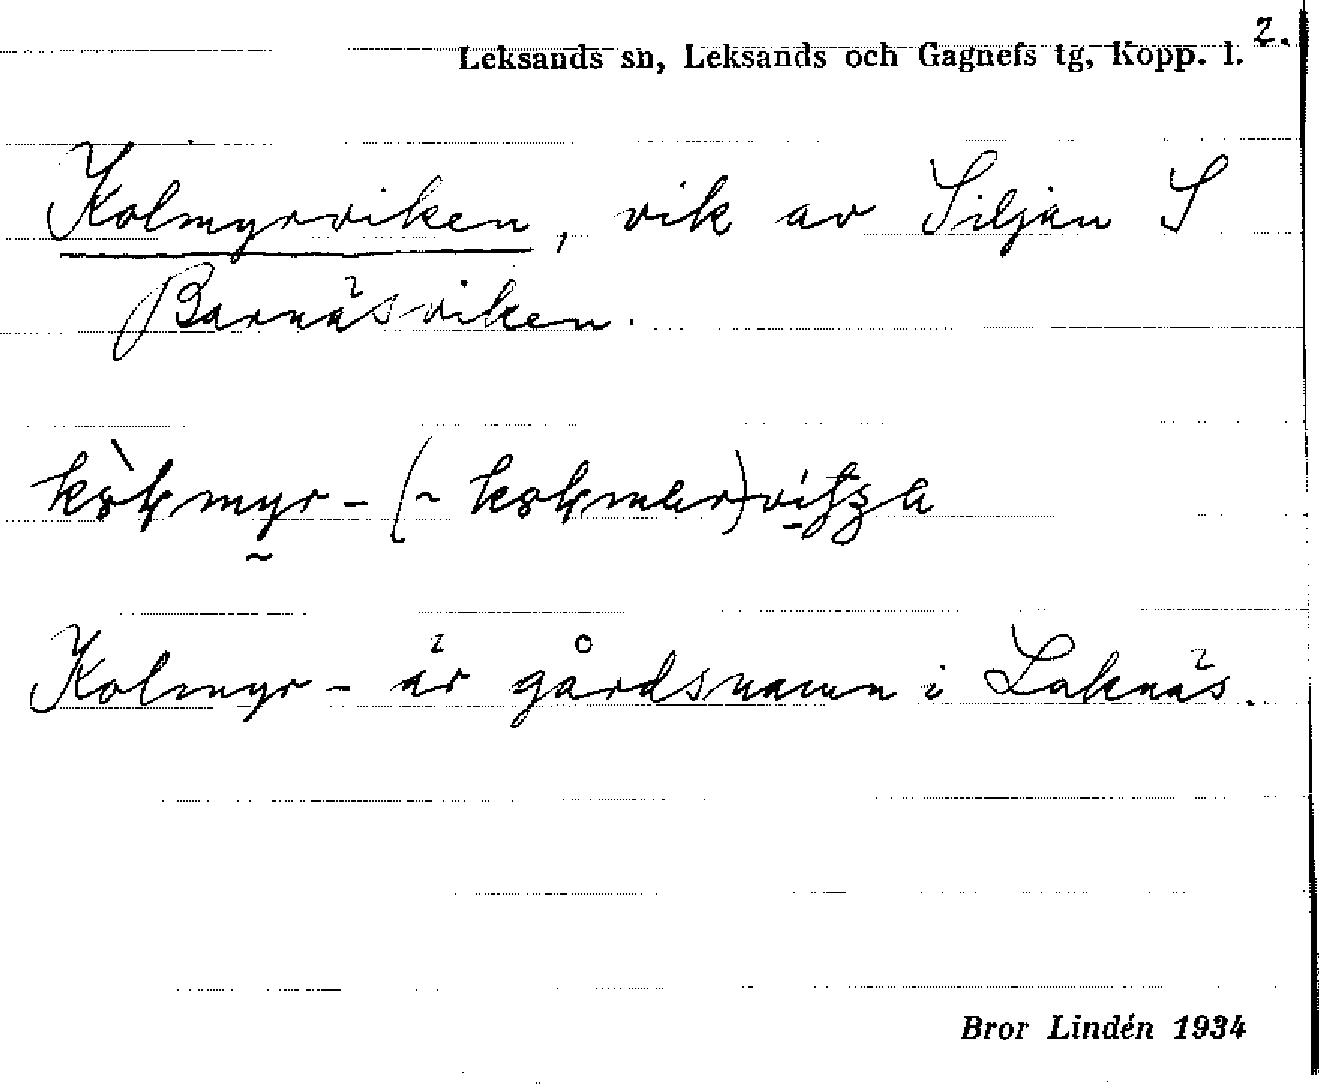 2.
Leksands sn, Leksands och Gagnefs tg, Kopp. l.
Kolmyrviken, vik av Siljan S
Barnäsviken.
Kolmyr- är gårdsnamn i Laknäs.
Bror Lindén 1934